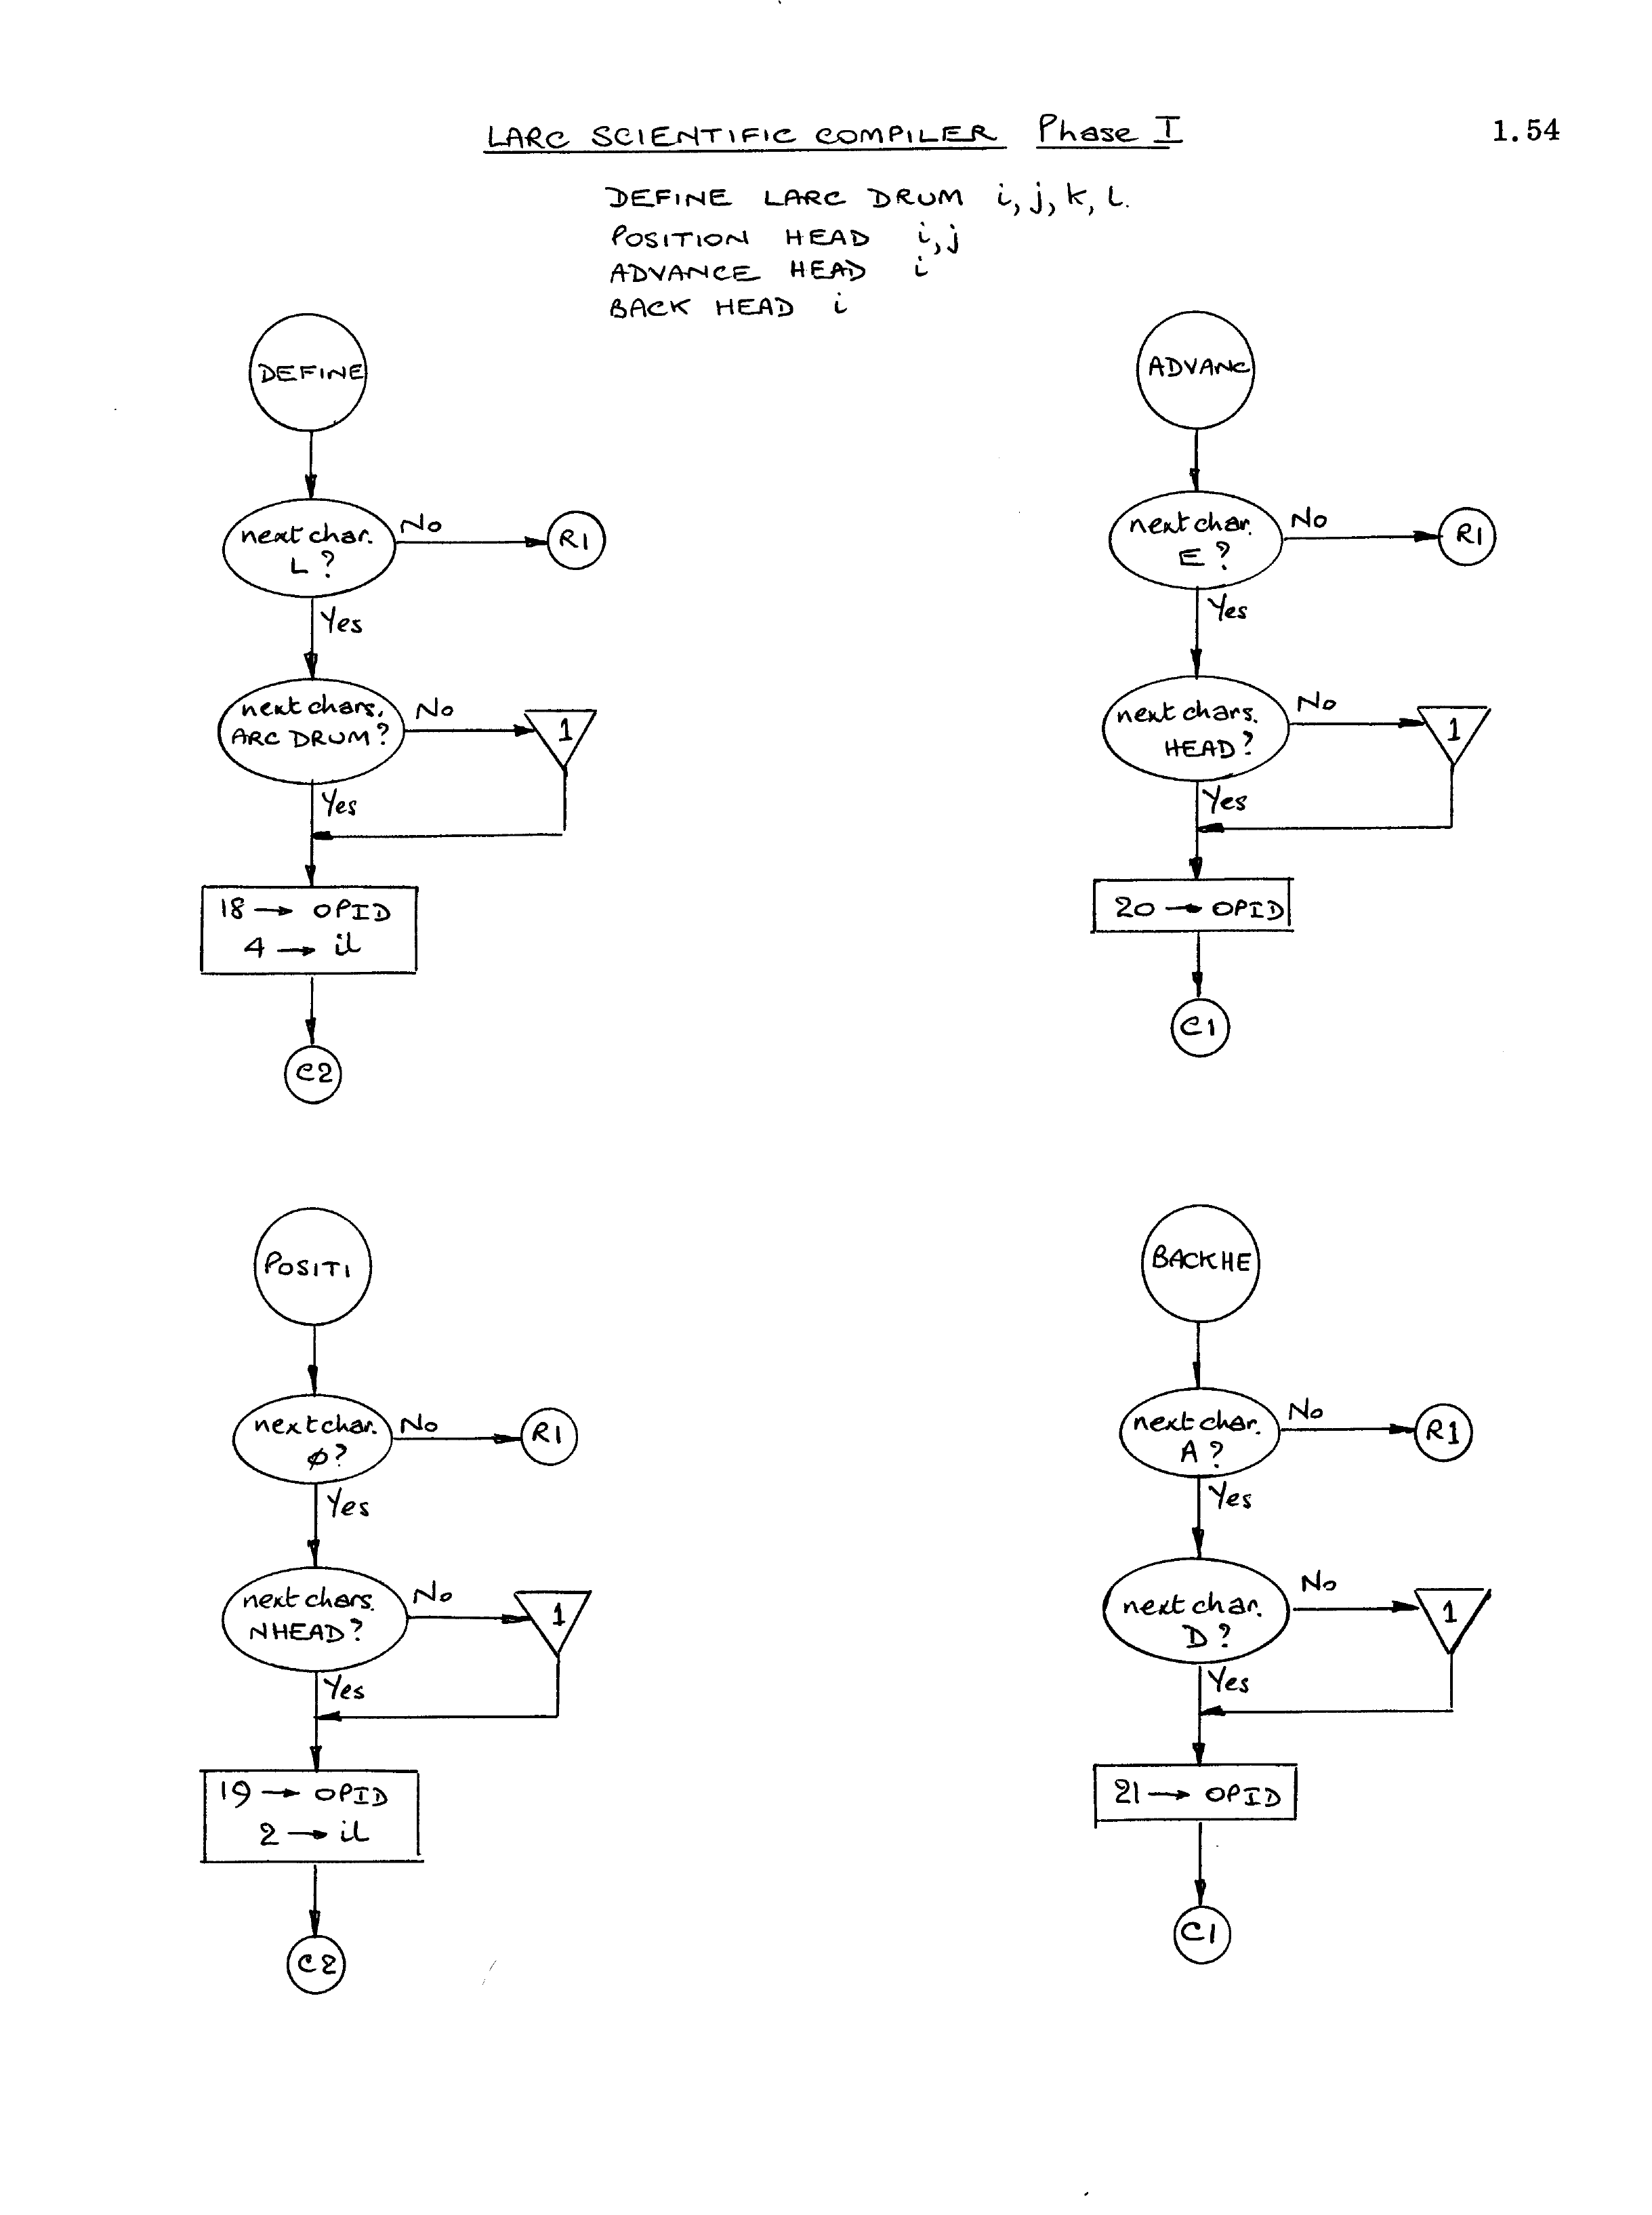 LARC SCIENTIFIC COMPILER Phase I
1.54
DEFINE LARC DRUM i, j, k, l.
POSITION HEAD i, j
ADVANCE HEAD i
BACK HEAD i
DEFINE
next char.
L ?
No
R1
Yes
next chars.
ARC DRUM?
No
1
Yes
18 → OPID
4 → il
C2
ADVANC
next char.
E ?
No
R1
Yes
next chars.
HEAD?
No
1
Yes
20 → OPID
C1
POSITI
next char.
ø?
No
R1
Yes
next chars.
NHEAD?
No
1
Yes
19 → OPID
2 → il
C2
BACKHE
next char.
A ?
No
R1
Yes
next char.
D ?
No
1
Yes
21 → OPID
C1